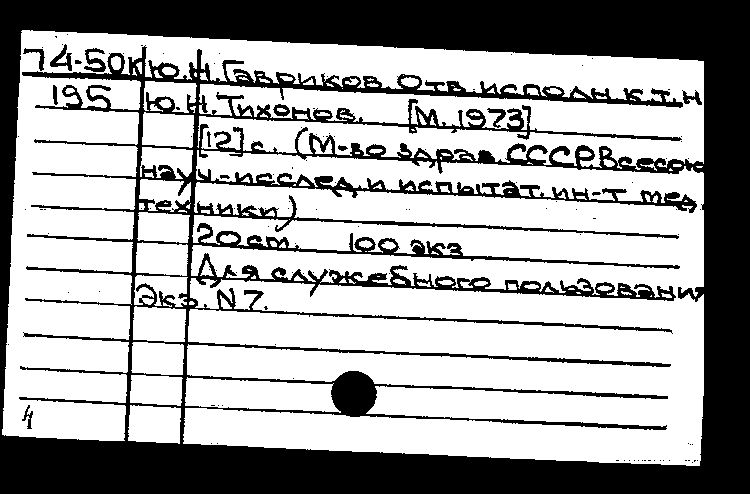 74-50К Ю.Н. Гавриков. Отв. исполн. к.т.н
195 Ю.Н. Тихонов. [М., 1973].
[12] с. (М-во здрав. СССР. Всесою
науч.-исслед. и испытат. ин-т мед.
техники)
20 см. 100 экз.
Для служебного пользования
Экз. N 7.
4